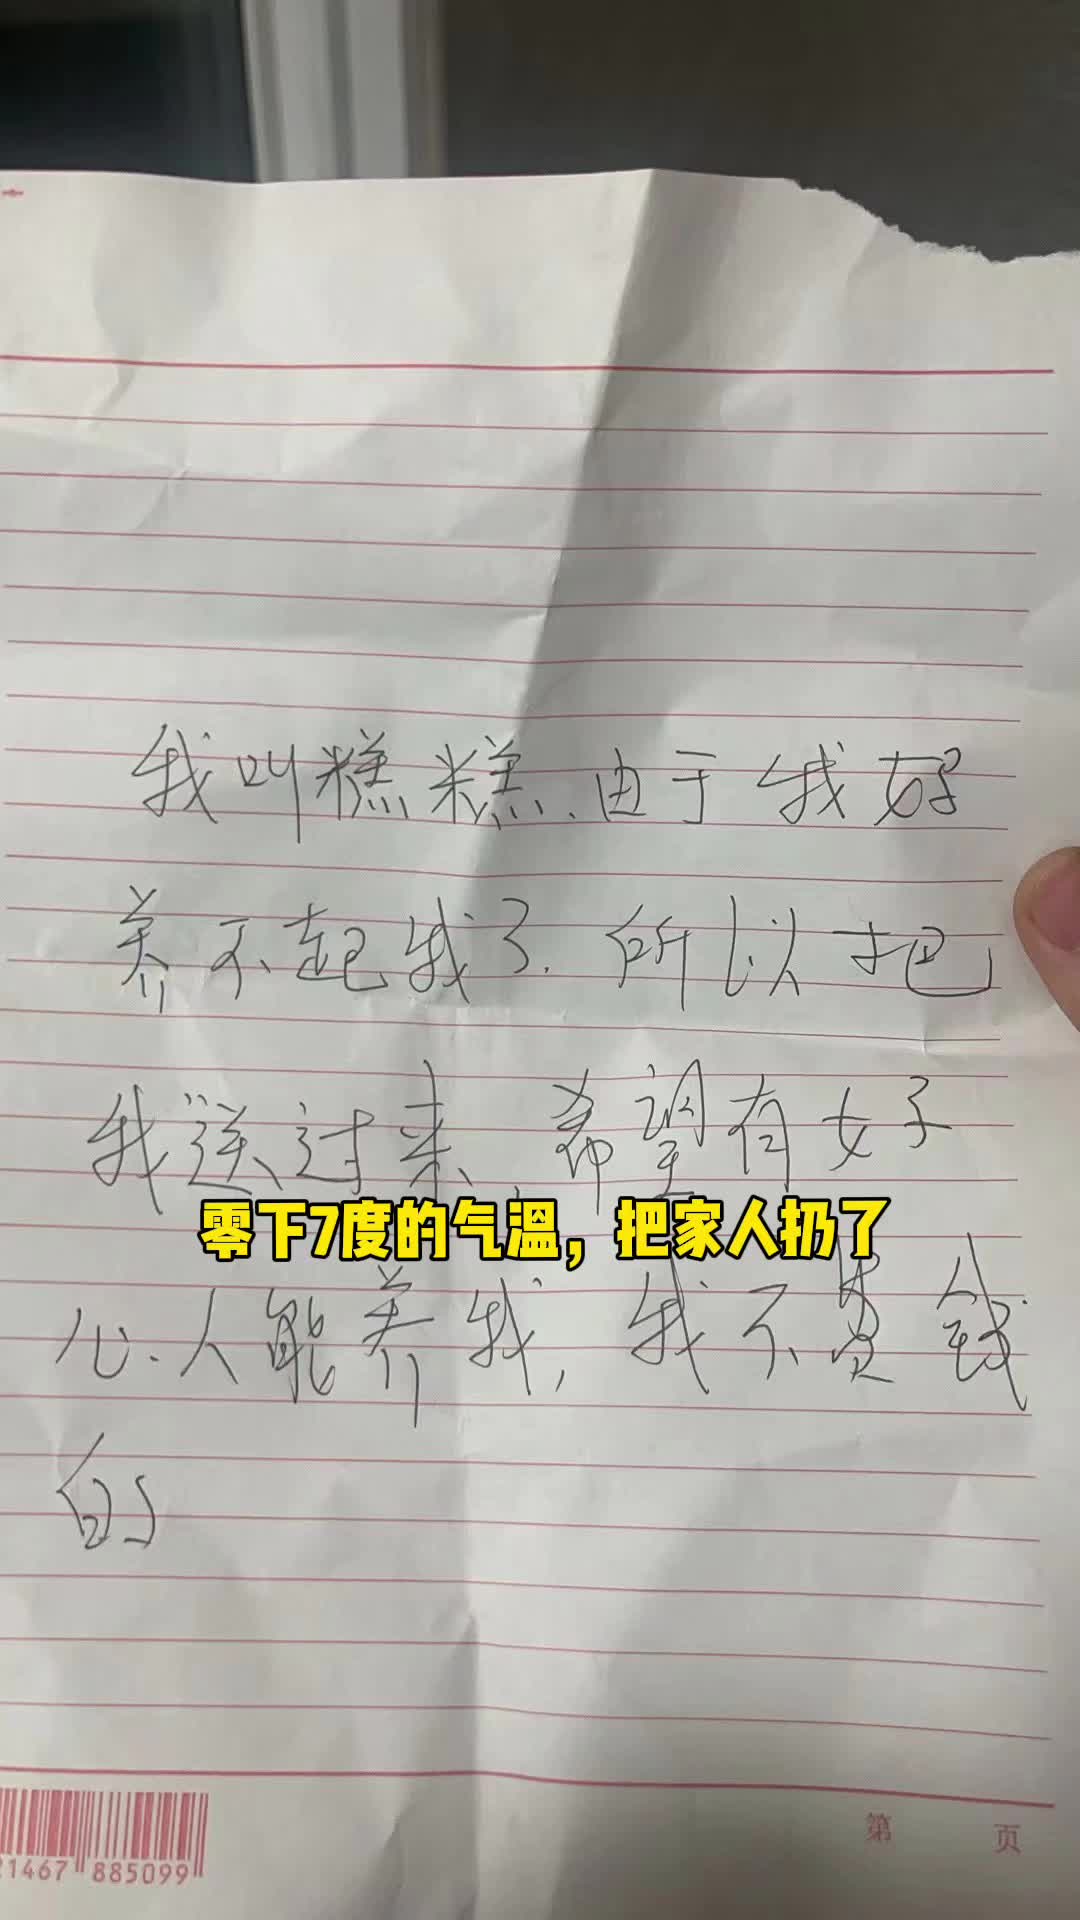 我叫糕糕.由于我好
养不起我了.所以把
我送过来、希望有好
零下7度的气温，把家人扔了
心.人能养我，我不费钱
的
第 页
21467 885099